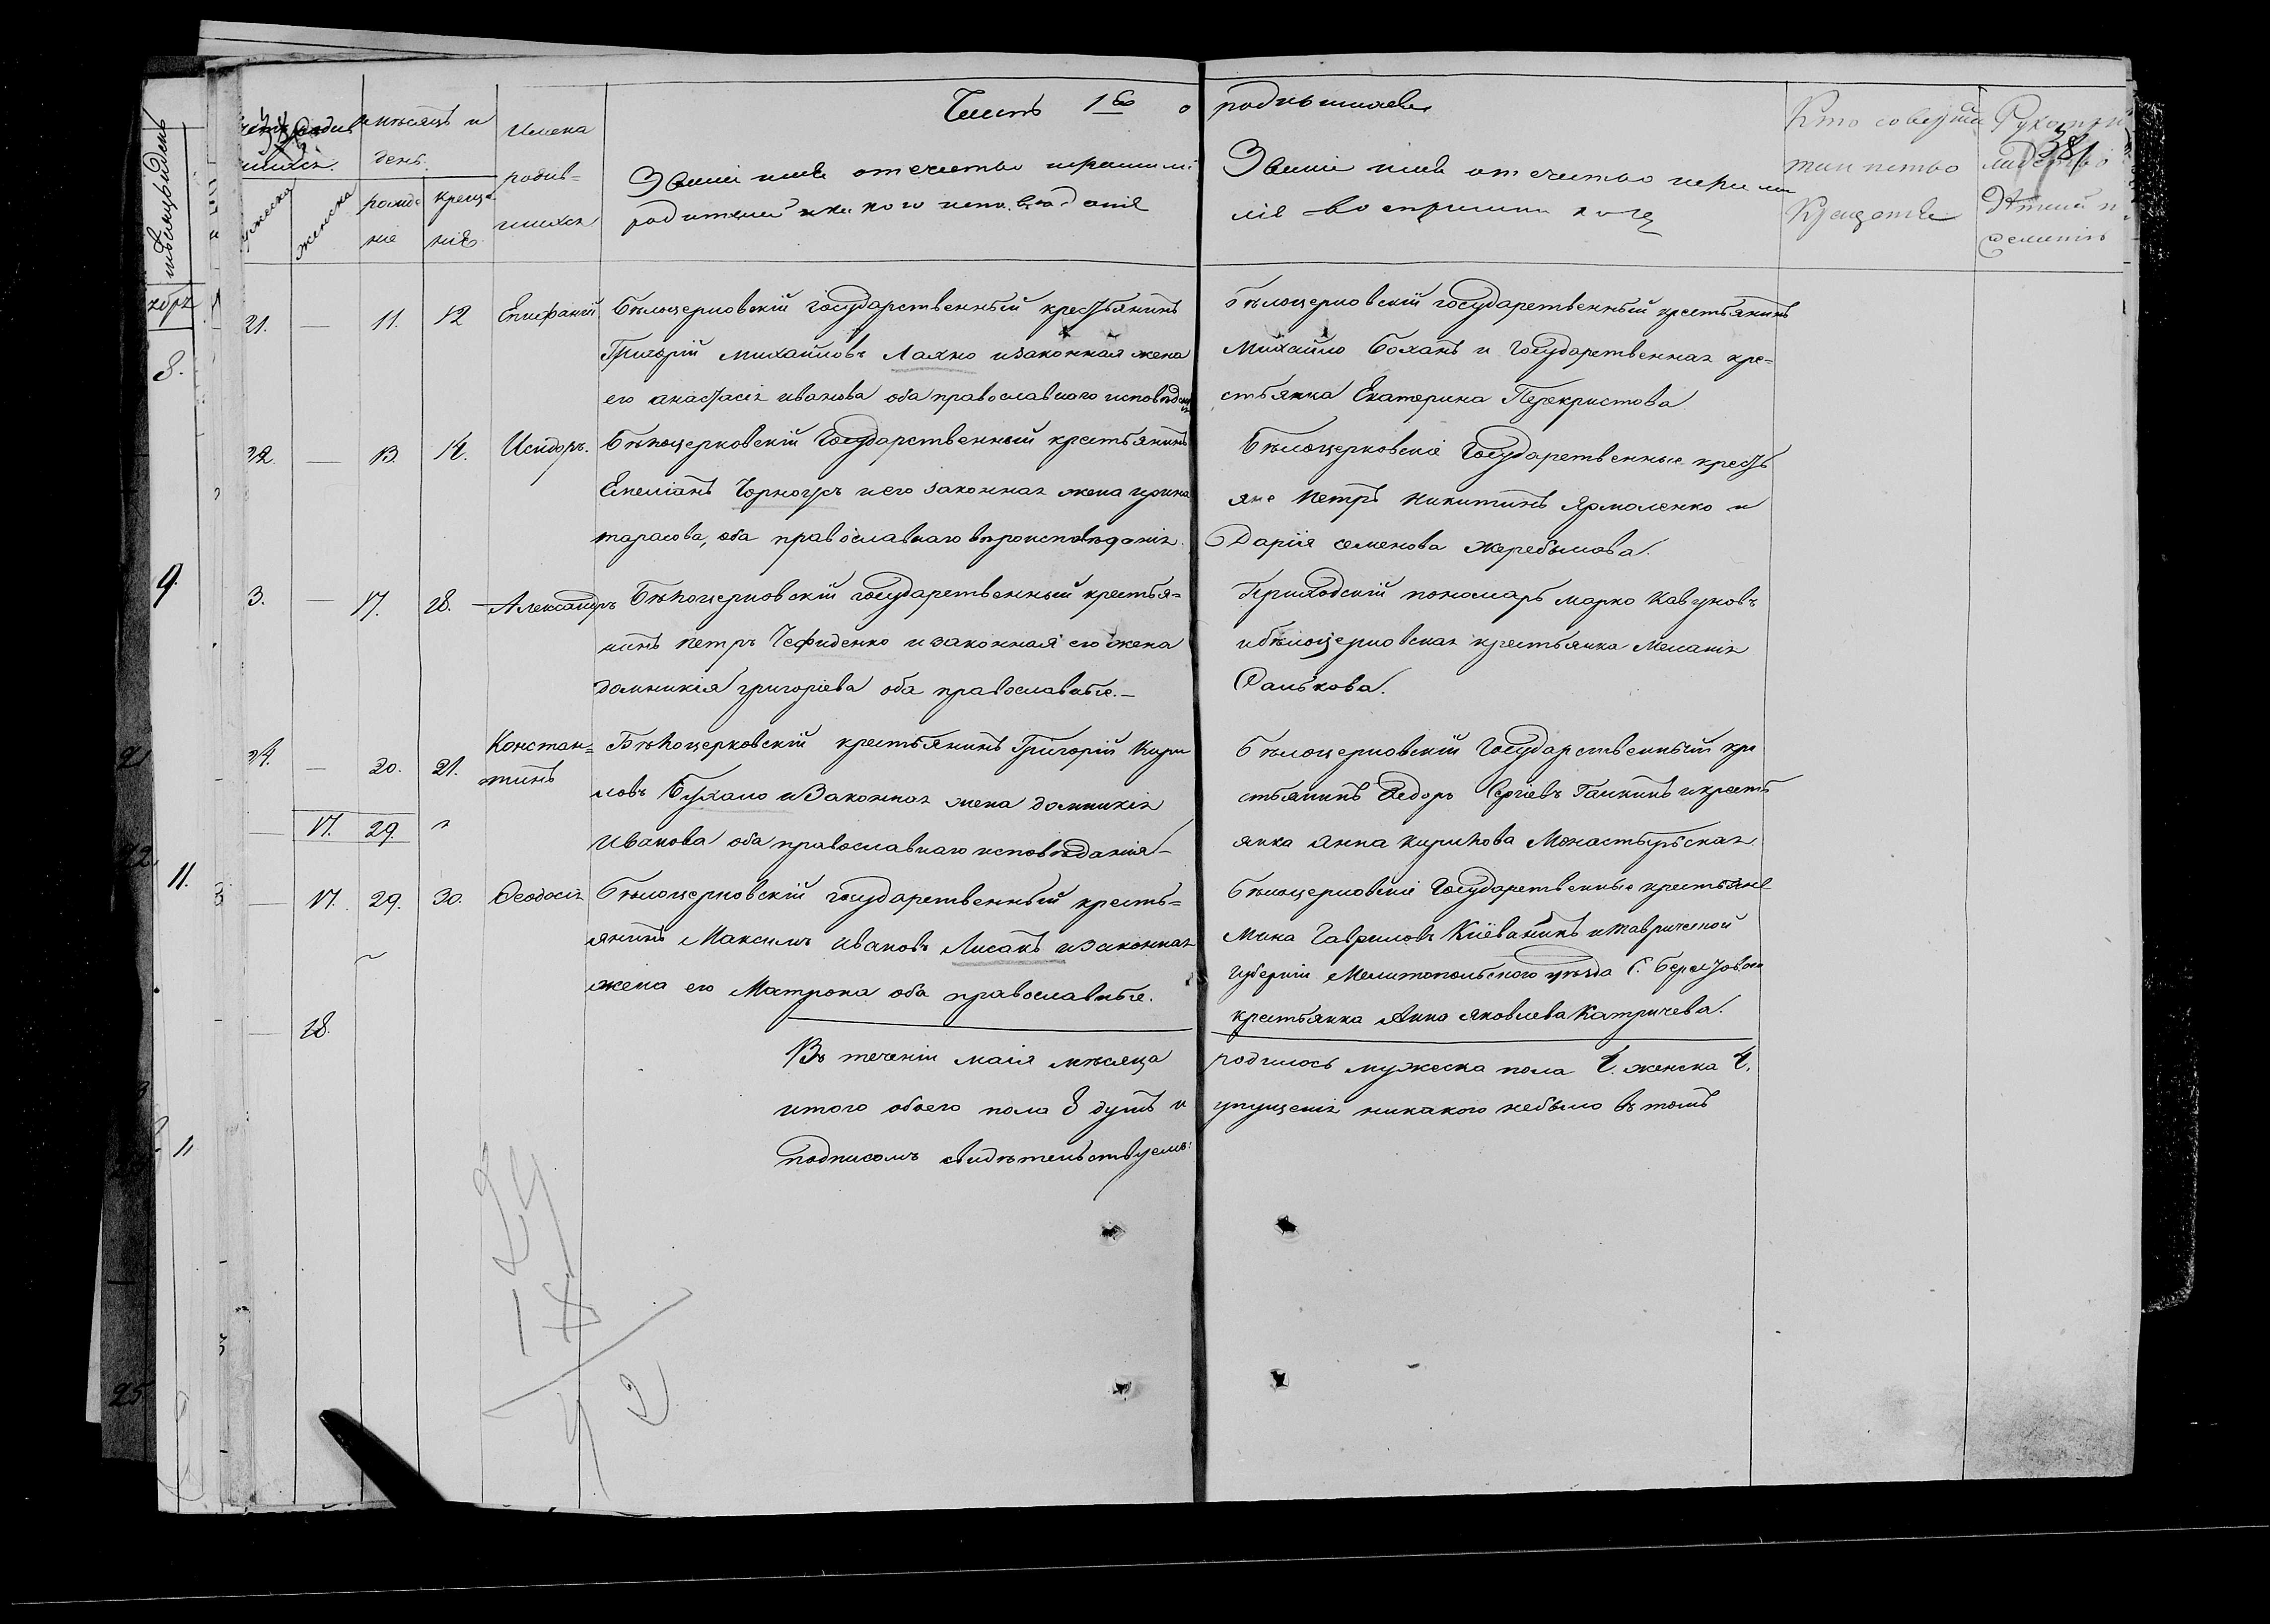 Часть 1ꙗ о родившихся
мѣсяцъ и
день.
рожде
нія
креще
нія
мужеска
женска
Имена
родив=
шихся
Званіе имя отечество и фамилія
родителей и какого исповѣданія
Званіе имя отечество и фами
лія воспріемниковъ
Кто совершалъ
таинство
Крещенія
381
21. — 11. 12 Епифаній
Бѣлоцерковскій государственный крестьянинъ
Григорій Михайловъ Лахно и законная жена
его анастасія иванова оба православного исповѣданія
бѣлоцерковскій государственный крестьянинъ
Михайло Боханъ и государственная кре=
стьянка Екатерина Перехристова
22. — 13. 14. Исидоръ.
Бѣлоцерковскій Государственный крестьянинъ
Емеліанъ Чорноусъ и его законная жена ирина
тарасова, оба православнаго вѣроисповѣданія.
Бѣлоцерковскіе Государственные кресть
яне Петръ Никитинъ Ярмоленко и
Дарія семенова Жеребылова.
3. — 17. 18. Александръ
Бѣлоцерковскій государственный крестья=
нинъ Петръ Чефиденко и законная его жена
домникія григоріева оба православные.—
Приходскій пономарь Марко Кавуновъ
и бѣлоцерковская крестьянка Меланія
Данькова.
24. — 20. 21. Констан=
тинъ
Бѣлоцерковскій крестьянинъ Григорій Кири
ловъ Бухало и Законная жена домникія
Иванова оба православнаго исповѣданія—
Бѣлоцерковскій Государственный кре
стьянинъ Ѳедоръ Сергіевъ Галкинъ и кресть
янка Анна Кирилова Монастырьская
— 17. 29.
— 17. 29. 30. Ѳеодосія
Бѣлоцерковскій государственный кресть=
янинъ Максимъ Ивановъ Лисакъ и законная
жена его Матрона оба православные.
Бѣлоцерковскіе Государственные крестьяне
Мина Гавриловъ Кіеваникъ и таврической
губерніи Мелитопольского уѣзда С. Берестового
крестьянка Анна Яковлева Катричева.
— 18.
Въ теченіи маія мѣсяца родилось мужеска пола 4. женска 4.
итого обоего пола 8 душъ и упущенія никакого небыло въ томъ
подписомъ свидѣтельствуемъ:
24
18
42
8.
9.
11.
11
25